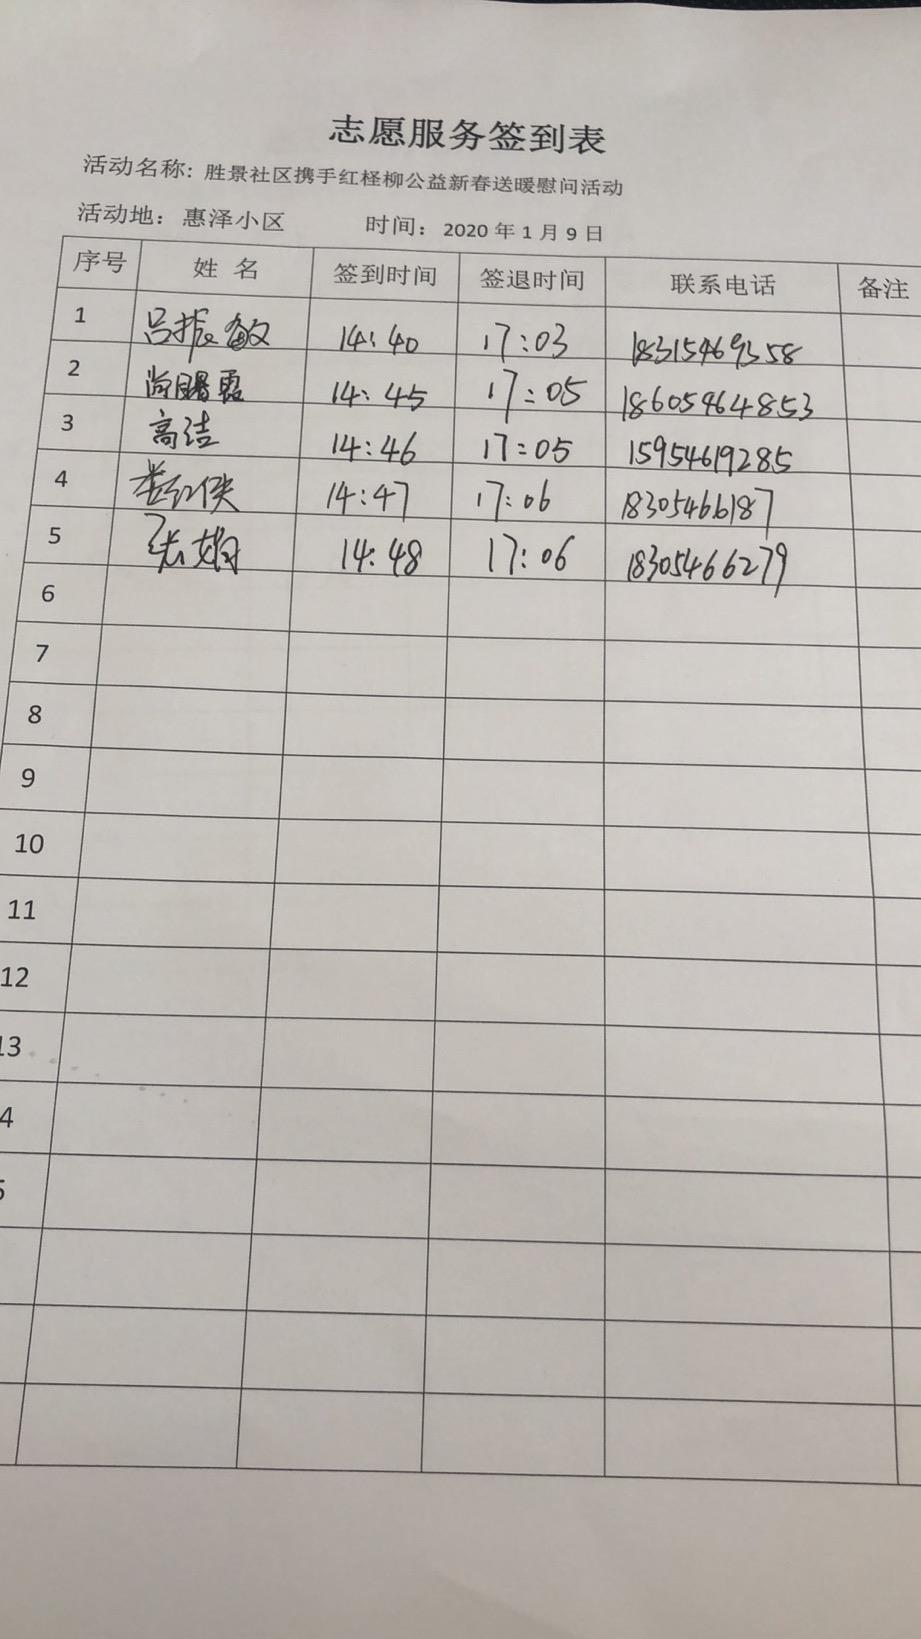 志愿服务签到表
活动名称: 胜景社区携手红柽柳公益新春送暖慰问活动
活动地: 惠泽小区 时间: 2020 年 1 月 9 日
序号 姓 名 签到时间 签退时间 联系电话 备注
1 吕振敏 14:40 17:03 18315469358
2 14:45 17:05 18605464853
3 高洁 14:46 17:05 15954619285
4 娄红侠 14:47 17:06 18305466187
5 张娟 14:48 17:06 18305466279
6
7
8
9
10
11
12
13
4
5